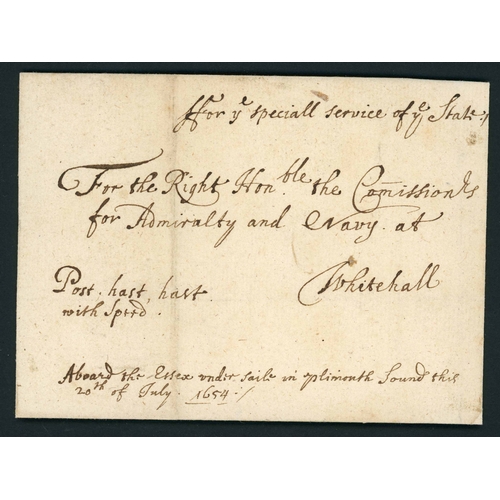 ffor yᵉ speciall service of yᵉ State :/
For the Right Honᵇˡᵉ. the Comissionʳˢ
for Admiralty and Navy. at
Whitehall
Post. hast, hast.
with Speed.
Aboard the Essex under saile in plimouth Sound this
20ᵗʰ of July. 1654 ./